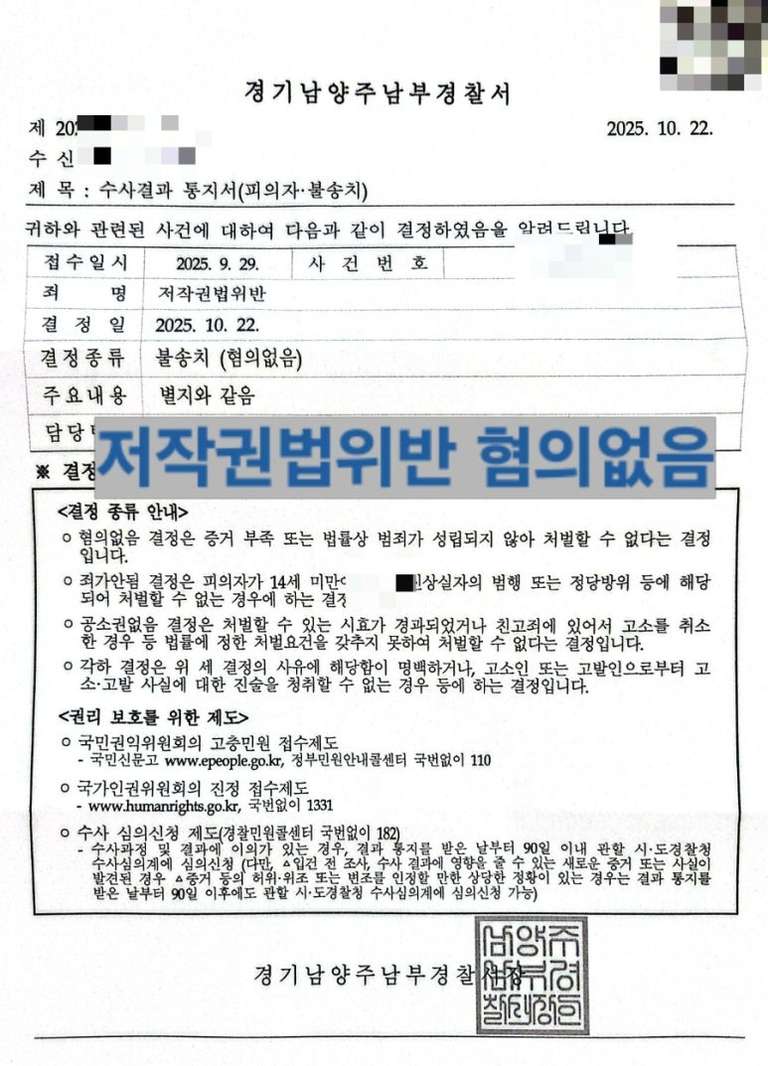 경기남양주남부경찰서
제 202
2025. 10. 22.
수 신
제 목 : 수사결과 통지서(피의자·불송치)
귀하와 관련된 사건에 대하여 다음과 같이 결정하였음을 알려드립니다
접수일시 2025. 9. 29. 사 건 번 호
죄 명 저작권법위반
결 정 일 2025. 10. 22.
결정종류 불송치 (혐의없음)
주요내용 별지와 같음
담당
저작권법위반 혐의없음
※ 결정
<결정 종류 안내>
○ 혐의없음 결정은 증거 부족 또는 법률상 범죄가 성립되지 않아 처벌할 수 없다는 결정
입니다.
○ 죄가안됨 결정은 피의자가 14세 미만 상실자의 범행 또는 정당방위 등에 해당
되어 처벌할 수 없는 경우에 하는 결정
○ 공소권없음 결정은 처벌할 수 있는 시효가 경과되었거나 친고죄에 있어서 고소를 취소
한 경우 등 법률에 정한 처벌요건을 갖추지 못하여 처벌할 수 없다는 결정입니다.
○ 각하 결정은 위 세 결정의 사유에 해당함이 명백하거나, 고소인 또는 고발인으로부터 고
소·고발 사실에 대한 진술을 청취할 수 없는 경우 등에 하는 결정입니다.
<권리 보호를 위한 제도>
○ 국민권익위원회의 고충민원 접수제도
- 국민신문고 www.epeople.go.kr, 정부민원안내콜센터 국번없이 110
○ 국가인권위원회의 진정 접수제도
- www.humanrights.go.kr, 국번없이 1331
○ 수사 심의신청 제도(경찰민원콜센터 국번없이 182)
- 수사과정 및 결과에 이의가 있는 경우, 결과 통지를 받은 날부터 90일 이내 관할 시·도경찰청
수사심의계에 심의신청 (다만, △입건 전 조사, 수사 결과에 영향을 줄 수 있는 새로운 증거 또는 사실이
발견된 경우 △증거 등의 허위·위조 또는 변조를 인정할 만한 상당한 정황이 있는 경우는 결과 통지를
받은 날부터 90일 이후에도 관할 시·도경찰청 수사심의계에 심의신청 가능)
경기남양주남부경찰서장